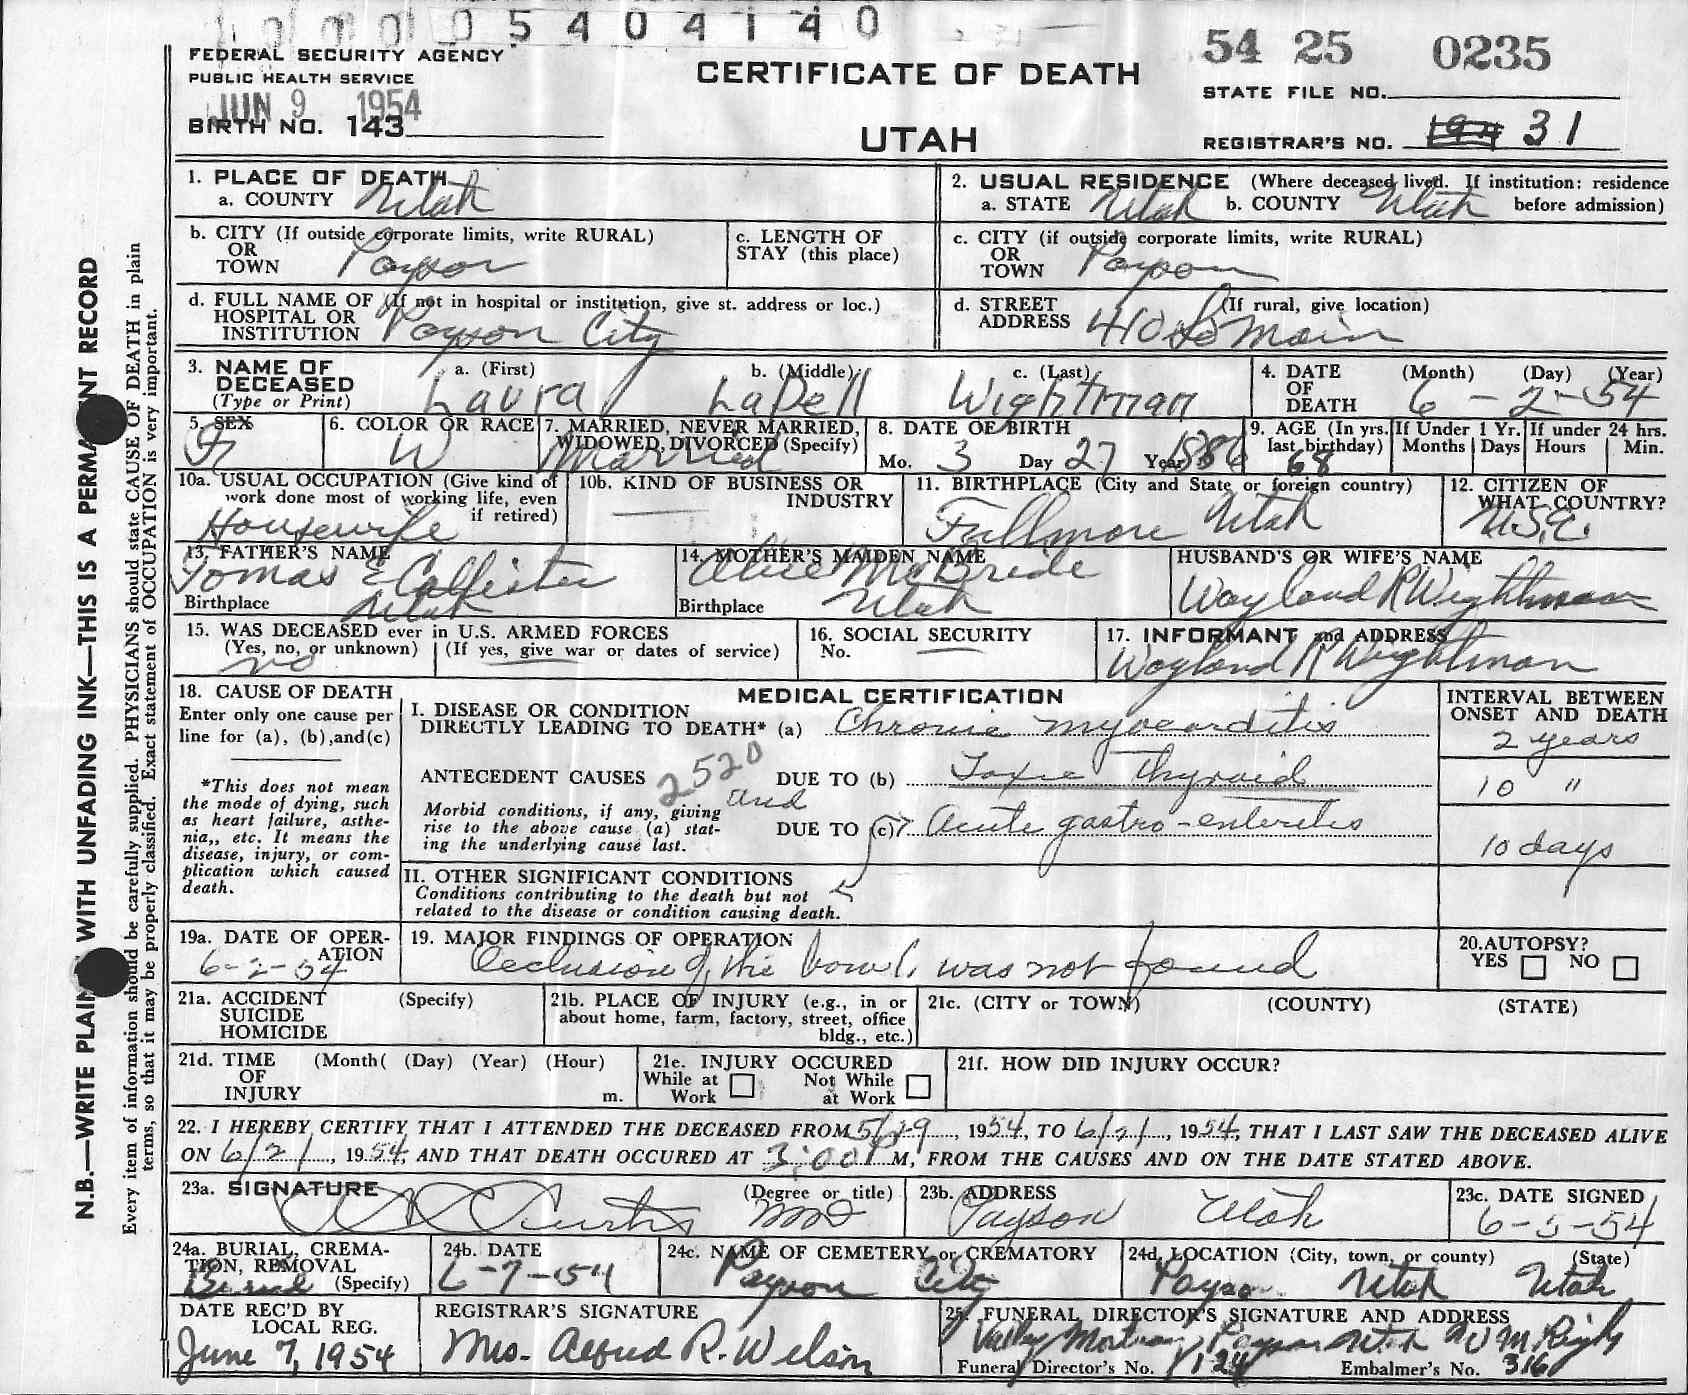 0 5 4 0 4 1 4 0
FEDERAL SECURITY AGENCY
PUBLIC HEALTH SERVICE
JUN 9 1954
BIRTH NO. 143
CERTIFICATE OF DEATH
UTAH
54 25 0235
STATE FILE NO.
REGISTRAR'S NO. 31
N.B.—WRITE PLAIN WITH UNFADING INK—THIS IS A PERMA NT RECORD
Every item of information should be carefully supplied. PHYSICIANS should state CAUSE OF DEATH in plain
terms, so that it may be properly classified. Exact statement of OCCUPATION is very important.
1. PLACE OF DEATH
a. COUNTY Utah
2. USUAL RESIDENCE (Where deceased lived. If institution: residence
a. STATE Utah b. COUNTY Utah before admission)
b. CITY (If outside corporate limits, write RURAL)
OR
TOWN Payson
c. LENGTH OF
STAY (this place)
c. CITY (if outside corporate limits, write RURAL)
OR
TOWN Payson
d. FULL NAME OF (If not in hospital or institution, give st. address or loc.)
HOSPITAL OR
INSTITUTION Payson City
d. STREET (If rural, give location)
ADDRESS 410 So Main
3. NAME OF
DECEASED
(Type or Print)
a. (First) b. (Middle) c. (Last)
Laura LaDell Wightman
4. DATE (Month) (Day) (Year)
OF
DEATH 6 - 2 - 54
5. SEX
F
6. COLOR OR RACE
W
7. MARRIED, NEVER MARRIED,
WIDOWED, DIVORCED (Specify)
Married
8. DATE OF BIRTH
Mo. 3 Day 27 Year 1886
9. AGE (In yrs.
last birthday)
68
If Under 1 Yr.
Months Days
If under 24 hrs.
Hours Min.
10a. USUAL OCCUPATION (Give kind of
work done most of working life, even
if retired)
Housewife
10b. KIND OF BUSINESS OR
INDUSTRY
11. BIRTHPLACE (City and State or foreign country)
Fillmore Utah
12. CITIZEN OF
WHAT COUNTRY?
13. FATHER'S NAME
Tomas E Callister
Birthplace Utah
14. MOTHER'S MAIDEN NAME
Alice McBride
Birthplace Utah
HUSBAND'S OR WIFE'S NAME
Wayland R Wightman
15. WAS DECEASED ever in U.S. ARMED FORCES
(Yes, no, or unknown) (If yes, give war or dates of service)
no
16. SOCIAL SECURITY
No.
17. INFORMANT and ADDRESS
Wayland R Wightman
18. CAUSE OF DEATH
Enter only one cause per
line for (a), (b), and (c)
*This does not mean
the mode of dying, such
as heart failure, asthe-
nia,, etc. It means the
disease, injury, or com-
plication which caused
death.
MEDICAL CERTIFICATION
I. DISEASE OR CONDITION
DIRECTLY LEADING TO DEATH* (a) Chronic myocarditis
ANTECEDENT CAUSES 2520 DUE TO (b) Toxic Thyroid
and
Morbid conditions, if any, giving
rise to the above cause (a) stat-
ing the underlying cause last.
DUE TO (c) Acute gastro-enteritis
II. OTHER SIGNIFICANT CONDITIONS
Conditions contributing to the death but not
related to the disease or condition causing death.
INTERVAL BETWEEN
ONSET AND DEATH
2 years
10 "
10 days
19a. DATE OF OPER-
ATION
6-2-54
19. MAJOR FINDINGS OF OPERATION
Occlusion of the bowl, was not found
20. AUTOPSY?
YES NO
21a. ACCIDENT (Specify)
SUICIDE
HOMICIDE
21b. PLACE OF INJURY (e.g., in or
about home, farm, factory, street, office
bldg., etc.)
21c. (CITY or TOWN) (COUNTY) (STATE)
21d. TIME (Month( (Day) (Year) (Hour)
OF
INJURY m.
21e. INJURY OCCURED
While at Not While
Work at Work
21f. HOW DID INJURY OCCUR?
22. I HEREBY CERTIFY THAT I ATTENDED THE DECEASED FROM 5/29, 1954, TO 6/2/, 1954, THAT I LAST SAW THE DECEASED ALIVE
ON 6/2/, 1954, AND THAT DEATH OCCURED AT 3:00 P M, FROM THE CAUSES AND ON THE DATE STATED ABOVE.
23a. SIGNATURE (Degree or title)
Curtis MD
23b. ADDRESS
Payson Utah
23c. DATE SIGNED
6-5-54
24a. BURIAL, CREMA-
TION, REMOVAL
Burial (Specify)
24b. DATE
6-7-54
24c. NAME OF CEMETERY or CREMATORY
Payson City
24d. LOCATION (City, town, or county) (State)
Payson Utah Utah
DATE REC'D BY
LOCAL REG.
June 7, 1954
REGISTRAR'S SIGNATURE
Mrs. Alfred R. Wilson
25. FUNERAL DIRECTOR'S SIGNATURE AND ADDRESS
Valley Mortuary Payson Utah
Funeral Director's No. 124 Embalmer's No. 316